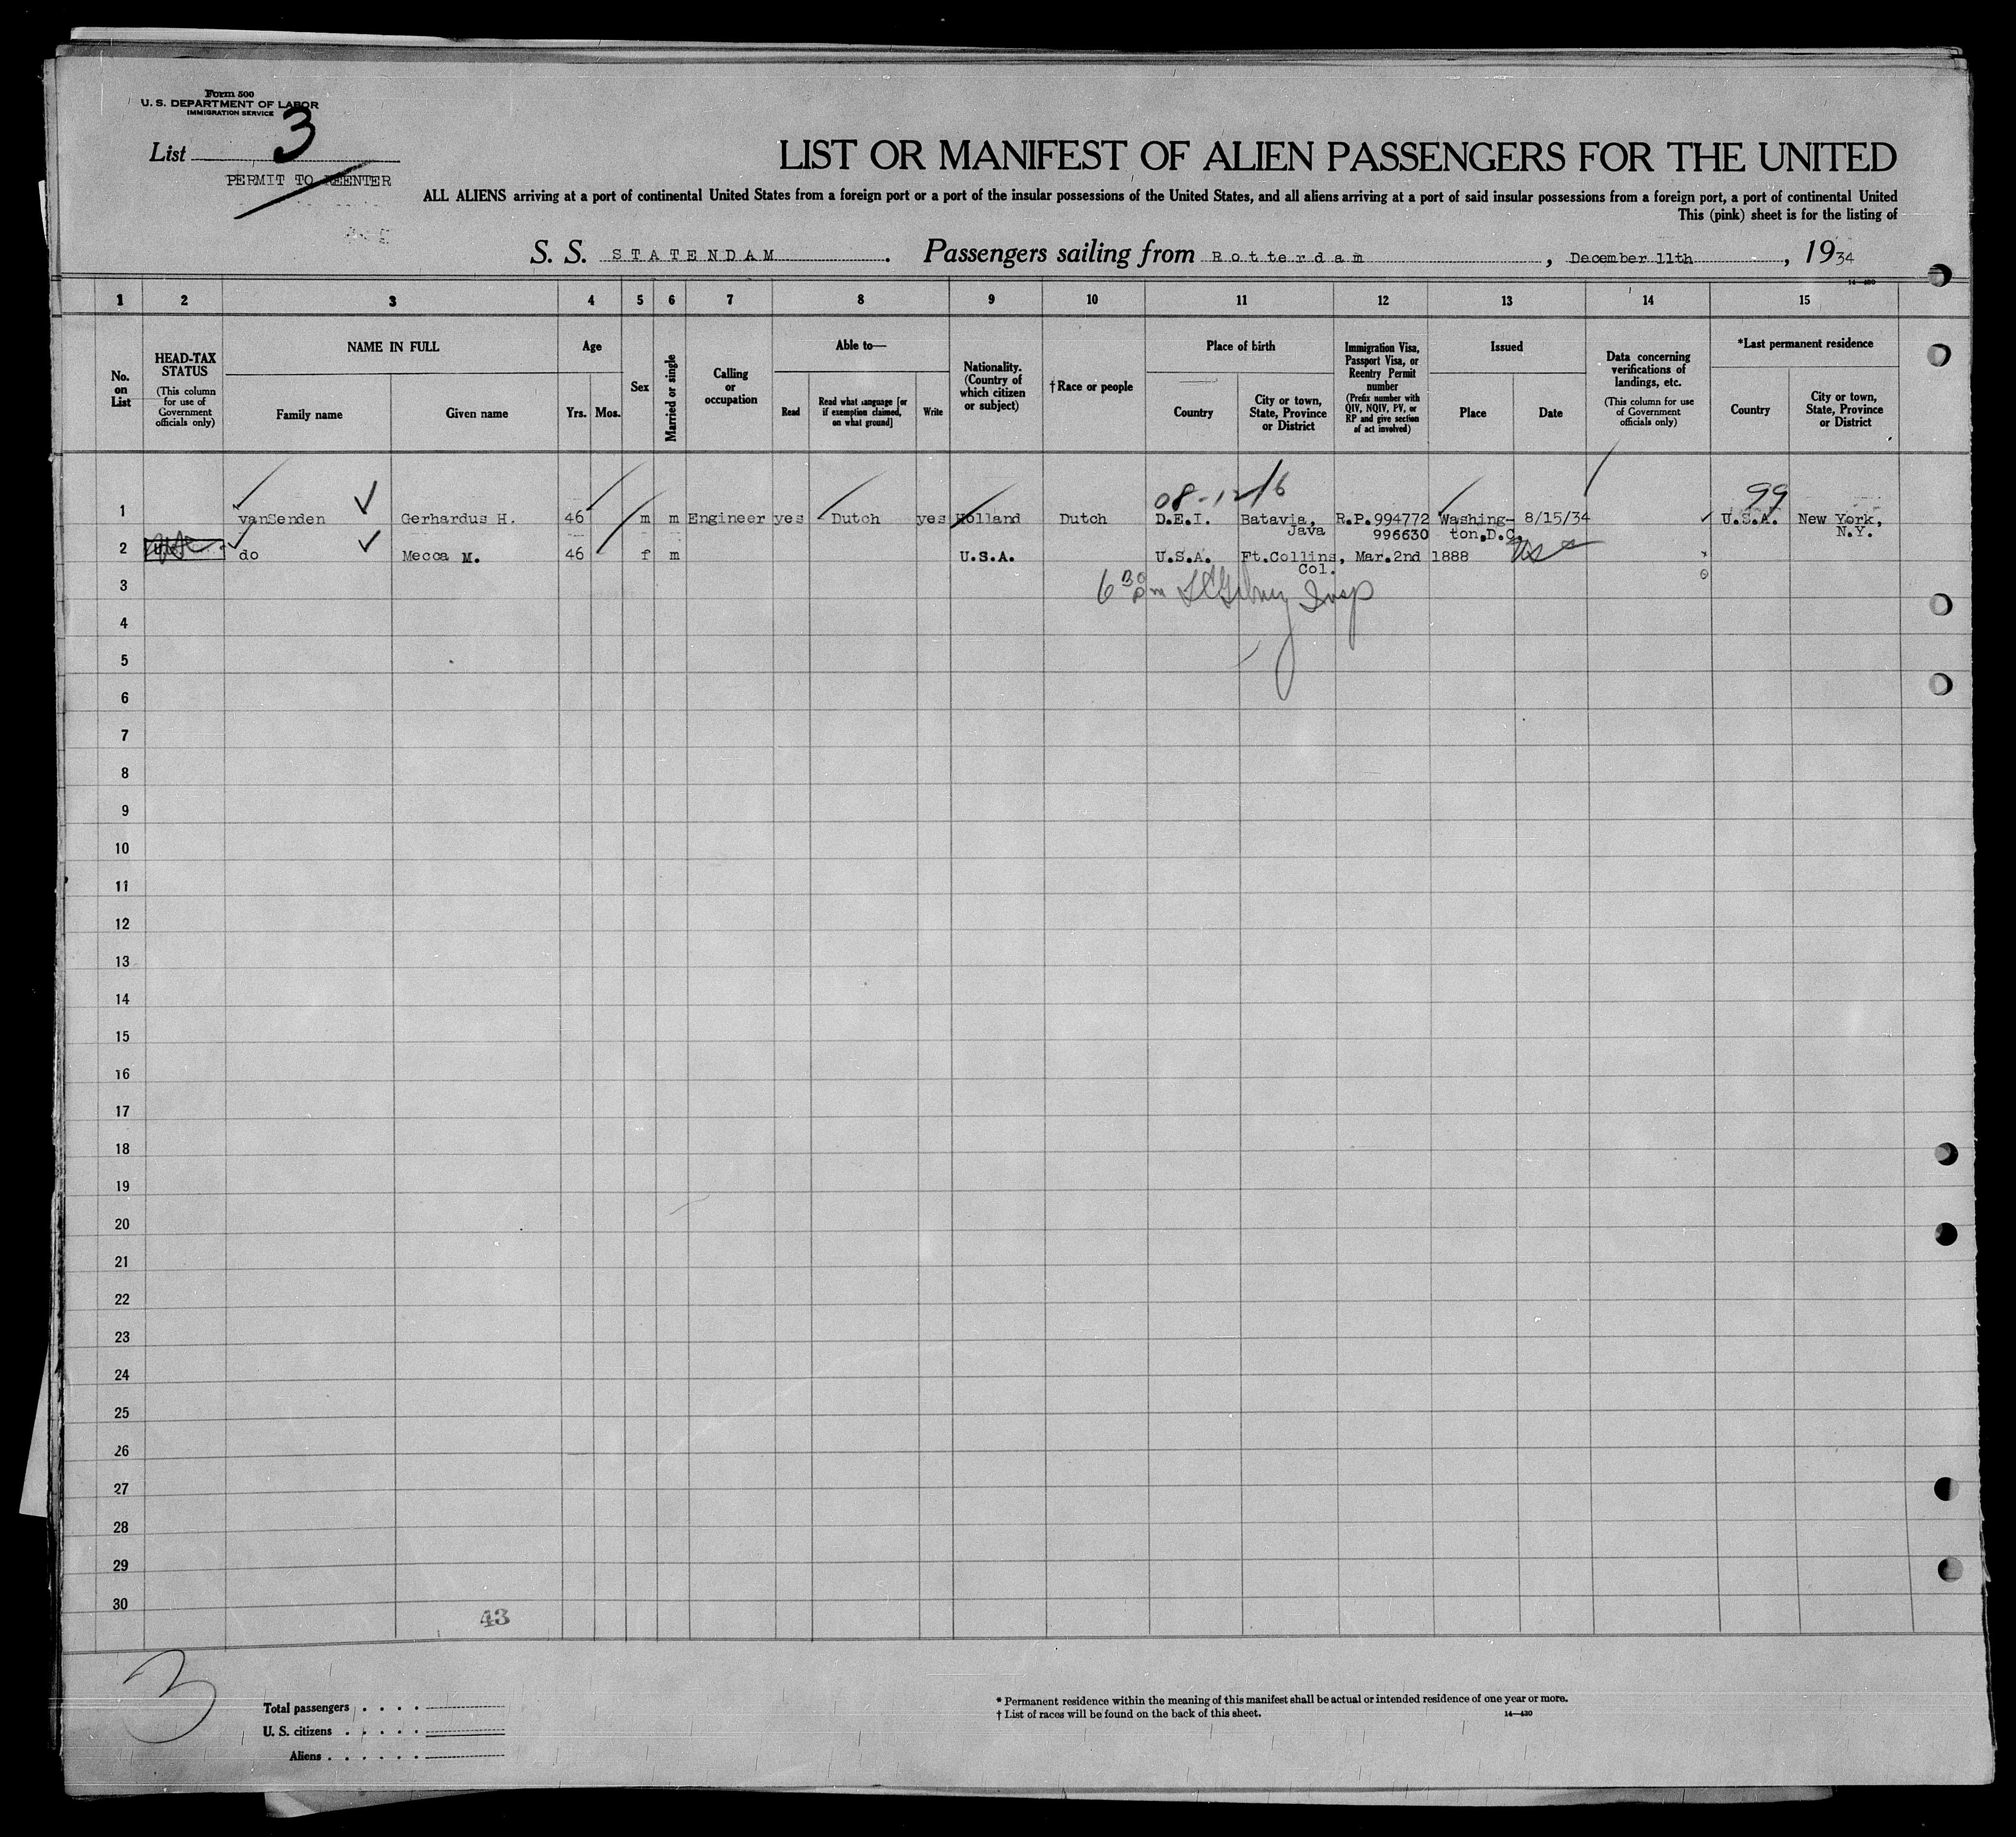 Form 500
U. S. DEPARTMENT OF LABOR
IMMIGRATION SERVICE
List 3
PERMIT TO REENTER
LIST OR MANIFEST OF ALIEN PASSENGERS FOR THE UNITED
ALL ALIENS arriving at a port of continental United States from a foreign port or a port of the insular possessions of the United States, and all aliens arriving at a port of said insular possessions from a foreign port, a port of continental United
This (pink) sheet is for the listing of
S. S. STATENDAM. Passengers sailing from Rotterdam, December 11th, 1934
14—430
1 2 3 4 5 6 7 8 9 10 11 12 13 14 15
No. on List
HEAD-TAX STATUS
(This column for use of Government officials only)
NAME IN FULL
Family name
Given name
Age
Yrs. Mos.
Sex
Married or single
Calling or occupation
Able to—
Read
Read what language [or if exemption claimed, on what ground]
Write
Nationality. (Country of which citizen or subject)
†Race or people
Place of birth
Country
City or town, State, Province or District
Immigration Visa, Passport Visa, or Reentry Permit number
(Prefix number with QIV, NQIV, PV, or RP and give section of act involved)
Issued
Place
Date
Data concerning verifications of landings, etc.
(This column for use of Government officials only)
*Last permanent residence
Country
City or town, State, Province or District
99
1 vanSenden Gerhardus H. 46 m m Engineer yes Dutch yes Holland Dutch D.E.I. Batavia, R.P.994772 Washing- 8/15/34 U.S.A. New York,
Java 996630 ton,D.C. N.Y.
2 do Mecca M. 46 f m U.S.A. U.S.A. Ft.Collins, Mar.2nd 1888
Col.
6 30 pm Insp
3
4
5
6
7
8
9
10
11
12
13
14
15
16
17
18
19
20
21
22
23
24
25
26
27
28
29
30
43
3
Total passengers . . . .
U. S. citizens . . . . .
Aliens . . . . . .
* Permanent residence within the meaning of this manifest shall be actual or intended residence of one year or more.
† List of races will be found on the back of this sheet.
14—430